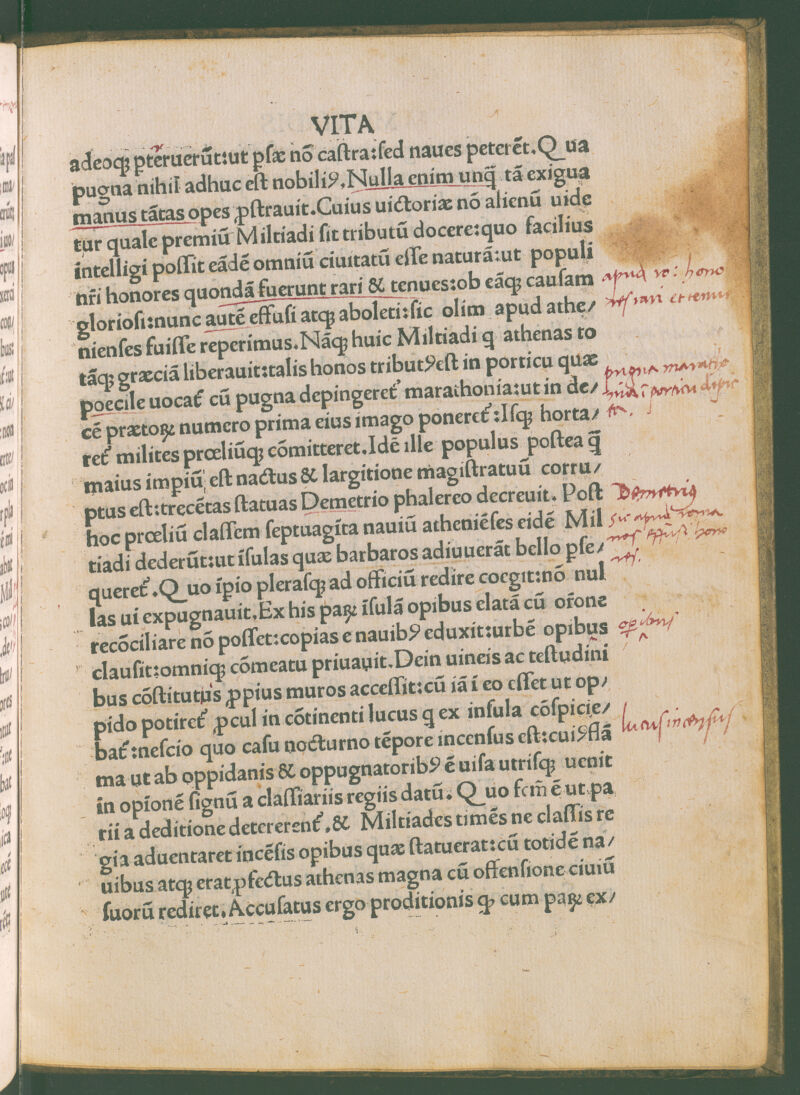 VITA
adeoqꝫ pterruerūt:ut ꝑsæ nō castra:sed naues peterēt.Qua
pugna nihil adhuc est nobiliꝰ.Nulla enim unq̄ tā exigua
manus tātas opes ꝓstrauit.Cuius uictoriæ nō alienū uide
tur quale premiū Miltiadi sit tributū docere:quo facilius
intelligi possit eādē omniū ciuitatū esse naturā:ut populi
nr̄i honores quondā fuerunt rari & tenues:ob eāqꝫ causam
gloriosi:nunc autē effusi atqꝫ aboleti:sic olim apud athe/
nienses fuisse reperimus.Nāqꝫ huic Miltiadi q athenas to
tāqꝫ græciā liberauit:talis honos tributꝰest in porticu quæ
poecile uocat̄ cū pugna depingeret̄ marathonia:ut in de/
cē prætoꝝ numero prima eius imago poneret̄:Isqꝫ horta/
ret̄ milites prœliūqꝫ cōmitteret.Idē ille populus postea q̄
maius impiū est nactus & largitione magistratuū corru/
ptus est:trecētas statuas Demetrio phalereo decreuit. Post
hoc prœliū classem septuagīta nauiū atheniēses eidē Mil
tiadi dederūt:ut īsulas quæ barbaros adiuuerāt bello pse/
queret̄.Quo īpio plerasqꝫ ad officiū redire coegit:nō nul
las ui expugnauit.Ex his paꝝ īsulā opibus elatā cū or̄one
recōciliare nō posset:copias e nauibꝰ eduxit:urbē opibus
clausit:omniqꝫ cōmeatu priuauit.Dein uineis ac testudini
bus cōstitutis ꝓpius muros accessit:cū iā ī eo esset ut op/
pido potiret̄ ꝓcul in cōtinenti lucus q ex insula cōspicie/
bat̄:nescio quo casu nocturno tēpore incensus est:cuiꝰflā
ma ut ab oppidanis & oppugnatoribꝰ ē uisa utrisqꝫ uenit
in opionē signū a classiariis regiis datū. Quo fcm̄ ē ut pa
rii a deditione detererent̄.& Miltiades timēs ne classis re
gia aduentaret incēsis opibus quæ statuerat:cū totidē na/
uibus atqꝫ erat ꝓfectus athenas magna cū offensione ciuiū
suorū rediret.Accusatus ergo proditionis ꝙ cum paꝝ ex/
apud ro: hono
res rari et tenui
pugna marato
nia ī porticu depic
ta.
Demetriꝰ
sic apud roma
nos effusi hono
res.
operibus
lucus incensus